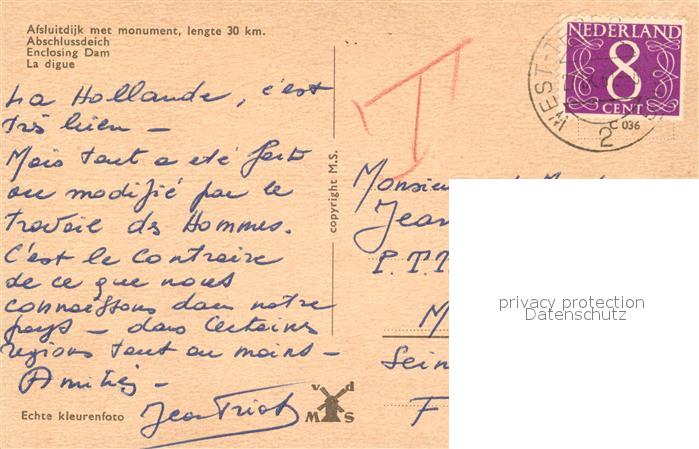 Afsluitdijk met monument, lengte 30 km.
Abschlussdeich
Enclosing Dam
La digue
La Hollande, c'est
très bien –
Mais tout a été fait
ou modifié par le
travail des Hommes.
C'est le contraire
de ce que nous
connaissons dans notre
pays – dans certaines
régions tout au moins –
Amitiés –
Jean Triot
Echte kleurenfoto
v d
M S
copyright M.S.
NEDERLAND
8
CENT
WEST-
2
C 036
T
Monsieur
Jean
P.T.T
M
Sein
F
privacy protection
Datenschutz